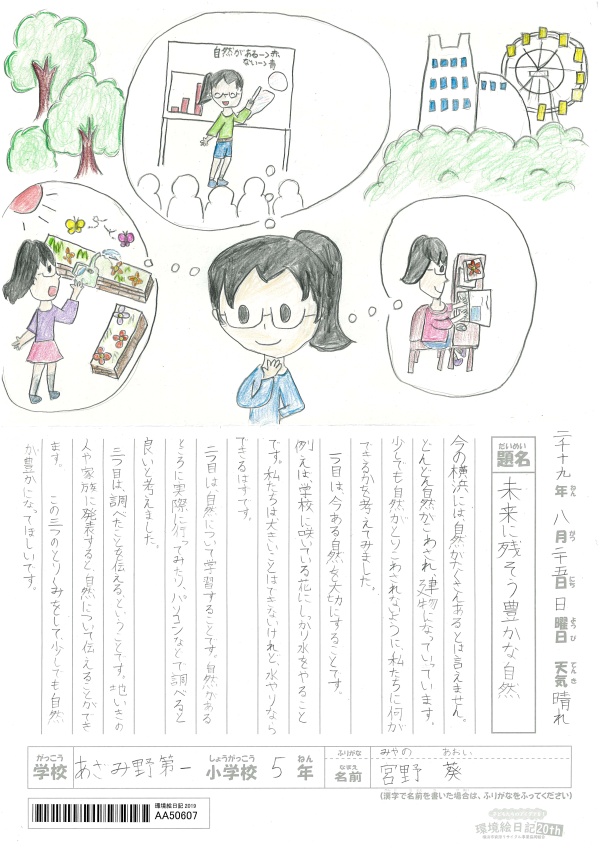 自然がある→赤
ない→青
二千十九年 八月二十五日 日曜日 天気 晴れ
だいめい
題名
未来に残そう豊かな自然
今の横浜には自然がたくさんあるとは言えません。
どんどん自然がこわされ、建物になっていっています。
少しでも自然がとりこわされないように、私たちに何が
できるかを考えてみました。
一つ目は、今ある自然を大切にすることです。
例えば、学校に咲いている花にしっかり水をやること
です。私たちは大きいことはできないけれど、水やりなら
できるはずです。
二つ目は自然について学習することです。自然がある
ところに実際に行ってみたり、パソコンなどで調べると
良いと考えました。
三つ目は、調べたことを伝えるということです。地いきの
人や家族に発表すると、自然について伝えることができ
ます。 この三つのとりくみをして、少しでも自然
が豊かになってほしいです。
がっこう
学校
あざみ野第一
しょうがっこう
小学校
5
ねん
年
ふりがな
みやの あおい
なまえ
名前
宮野 葵
(漢字で名前を書いた場合は、ふりがなをふってください)
環境絵日記 2019
AA50607
環境絵日記 20th